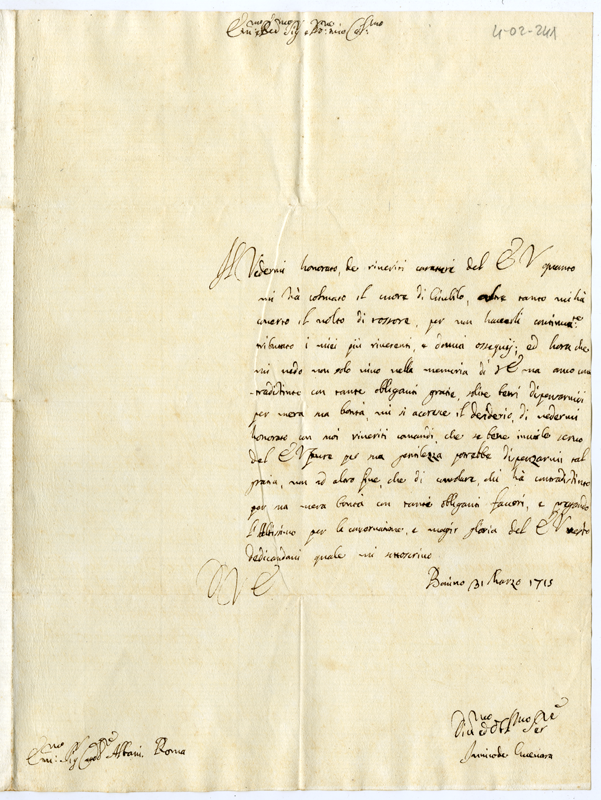 Em:mo e Rev:mo Sig:r e P:ron mio Col:mo
4-02-241
Il Vedermi honorato, de riveriti caratteri del E V quanto
mi hà colmato il cuore di Giubilo, altre tanto mi hà
coverto il volto di rossore, per non haverli continuam:te
tributato i miei più riverenti, e dovuti ossequij; ed hora che
mi vedo non solo vivo nella memoria di V E ma anco con-
tradistinto con tante obliganti grazie, solite bensì dispensarmisi
per mera sua bontà mi si accresce il desiderio, di vedermi
honorato con suoi riveriti comandi, che se bene inutile servo
del E V pure per sua gentilezza potrebbe dispenzarmi tal
grazia, non ad altro fine, che di ubbidire, chi hà contradistinto
per sua mera bontà con tanti obliganti favori, e pregando
l'Altissimo per la conservazione, e magior gloria del E V resto
dedicandomi quale mi sottoscrivo
D V E
Baiino 31 Marzo 1715
Em:mo Sig:r Card:le Albani. Roma
Div:mo ed Obl:mo
Ser:re
Guevara